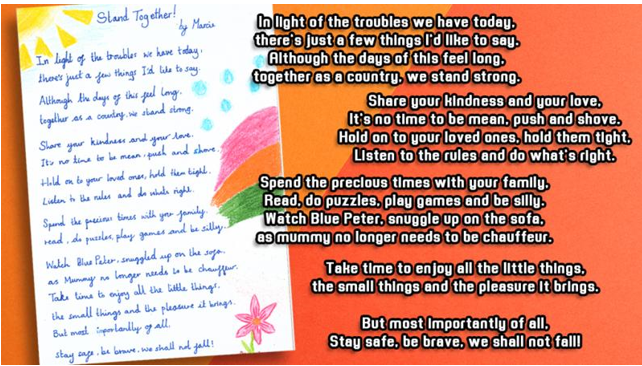 Stand Together!
by Marcie
In light of the troubles we have today,
there's just a few things I'd like to say.
Although the days of this feel long,
together as a country, we stand strong.
Share your kindness and your love.
It's no time to be mean, push and shove.
Hold on to your loved ones, hold them tight.
Listen to the rules and do whats right.
Spend the precious times with your family.
read, do puzzles, play games and be silly.
Watch Blue Peter, snuggled up on the sofa.
as Mummy no longer needs to be chauffeur.
Take time to enjoy all the little things.
the small things and the pleasure it brings.
But most importantly of all,
stay safe, be brave, we shall not fall!
In light of the troubles we have today,
there's just a few things I'd like to say.
Although the days of this feel long,
together as a country, we stand strong.
Share your kindness and your love,
It's no time to be mean, push and shove.
Hold on to your loved ones, hold them tight,
Listen to the rules and do what's right.
Spend the precious times with your family,
Read, do puzzles, play games and be silly.
Watch Blue Peter, snuggle up on the sofa,
as mummy no longer needs to be chauffeur.
Take time to enjoy all the little things,
the small things and the pleasure it brings.
But most importantly of all,
Stay safe, be brave, we shall not fall!